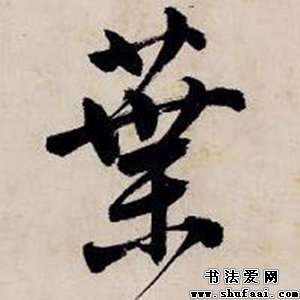 葉
书法爱网
www.shufaai.com